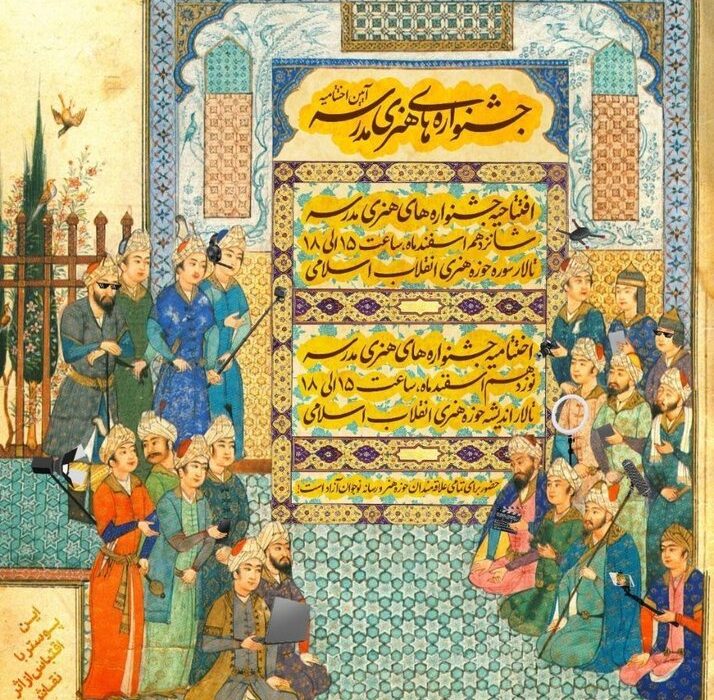 آیین اختتامیه
جشنواره‌های هنری مدرسه
افتتاحیه جشنواره های هنری مدرسه
شانزدهم اسفندماه، ساعت ۱۵ الی ۱۸
تالار سوره حوزه هنری انقلاب اسلامی
اختتامیه جشنواره های هنری مدرسه
نوزدهم اسفندماه، ساعت ۱۵ الی ۱۸
تالار اندیشه حوزه هنری انقلاب اسلامی
حضور برای تمامی علاقه‌مندان حوزه هنر و رسانه نوجوان آزاد است!
این
پوستر با
اقتباس از اثر